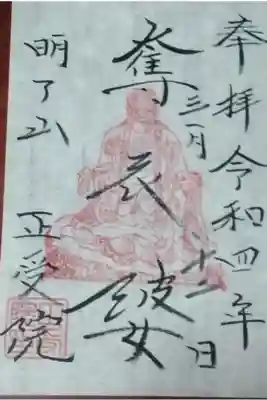 奉拝令和四年
三月十二日
奪衣婆
明了山
正受院